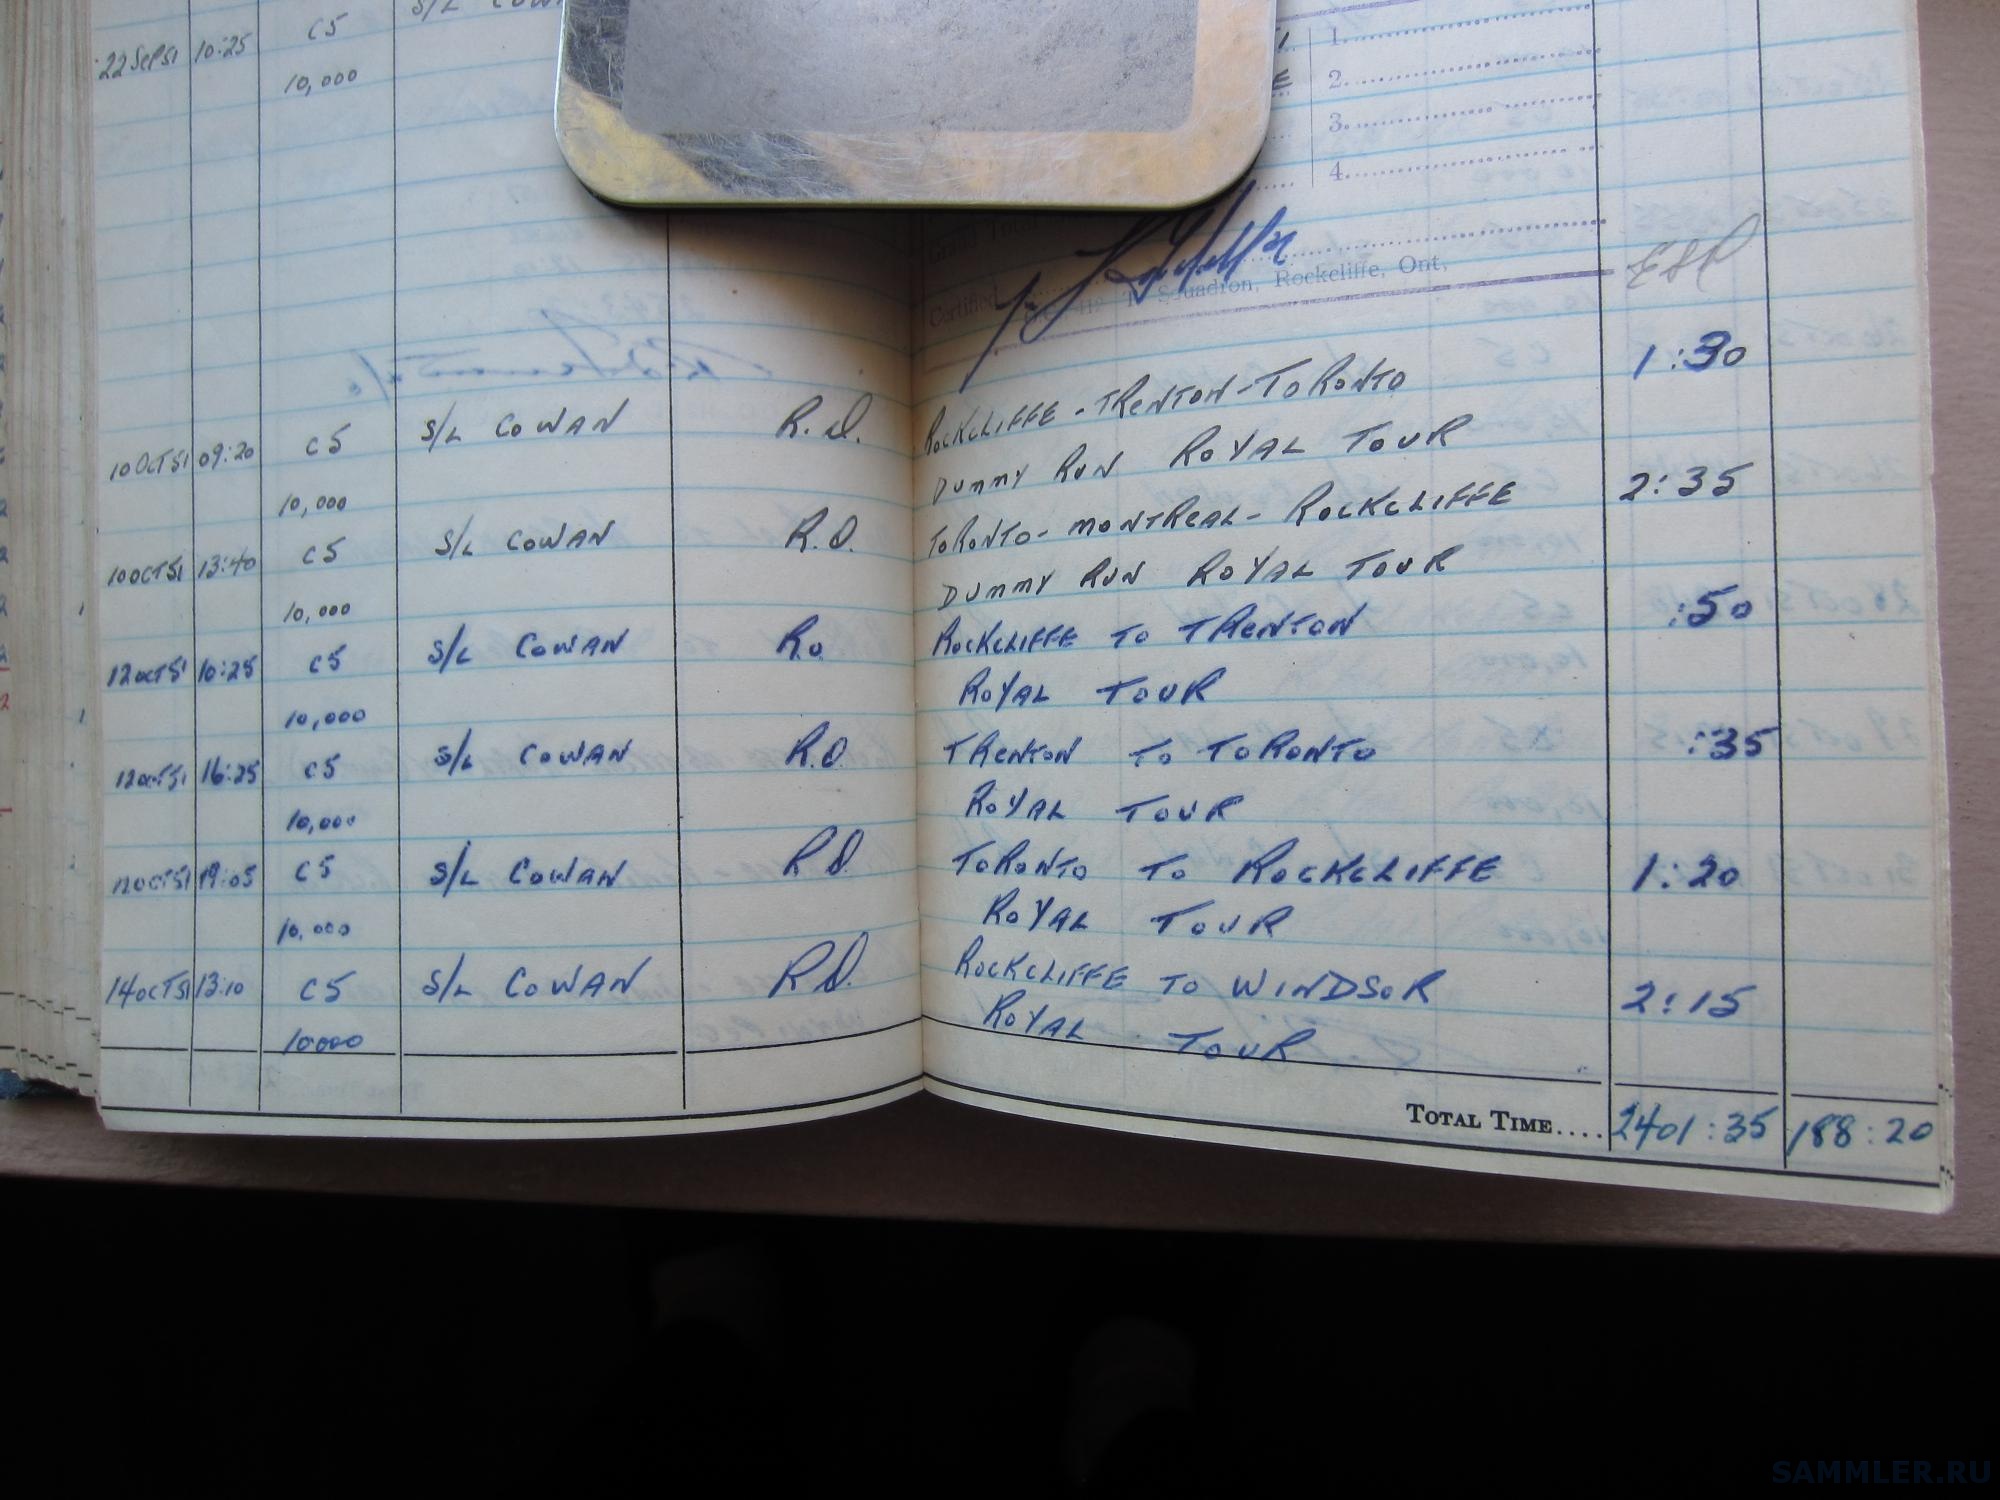 S/L COWAN
22 SEP 51 10:25 C5
10,000
1.
2.
3.
4.
Grand Total
Certified
T Squadron, Rockcliffe, Ont,
1:30
10 OCT 51 09:20 C5 S/L COWAN R.O. ROCKCLIFFE - TRENTON - TORONTO
10,000 DUMMY RUN ROYAL TOUR
10 OCT 51 13:40 C5 S/L COWAN R.O. TORONTO - MONTREAL - ROCKCLIFFE 2:35
10,000 DUMMY RUN ROYAL TOUR
12 OCT 51 10:25 C5 S/L COWAN R.O ROCKCLIFFE TO TRENTON :50
10,000 ROYAL TOUR
12 OCT 51 16:25 C5 S/L COWAN R.O. TRENTON TO TORONTO :35
10,000 ROYAL TOUR
12 OCT 51 19:05 C5 S/L COWAN R.O. TORONTO TO ROCKCLIFFE 1:20
10,000 ROYAL TOUR
14 OCT 51 13:10 C5 S/L COWAN R.O. ROCKCLIFFE TO WINDSOR 2:15
10000 ROYAL TOUR
TOTAL TIME.... 2401:35 188:20
SAMMLER.RU